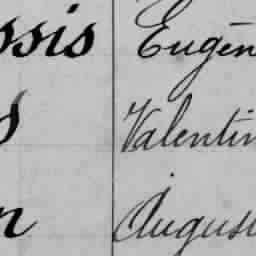 ssis Eugén
s Valentin
n August